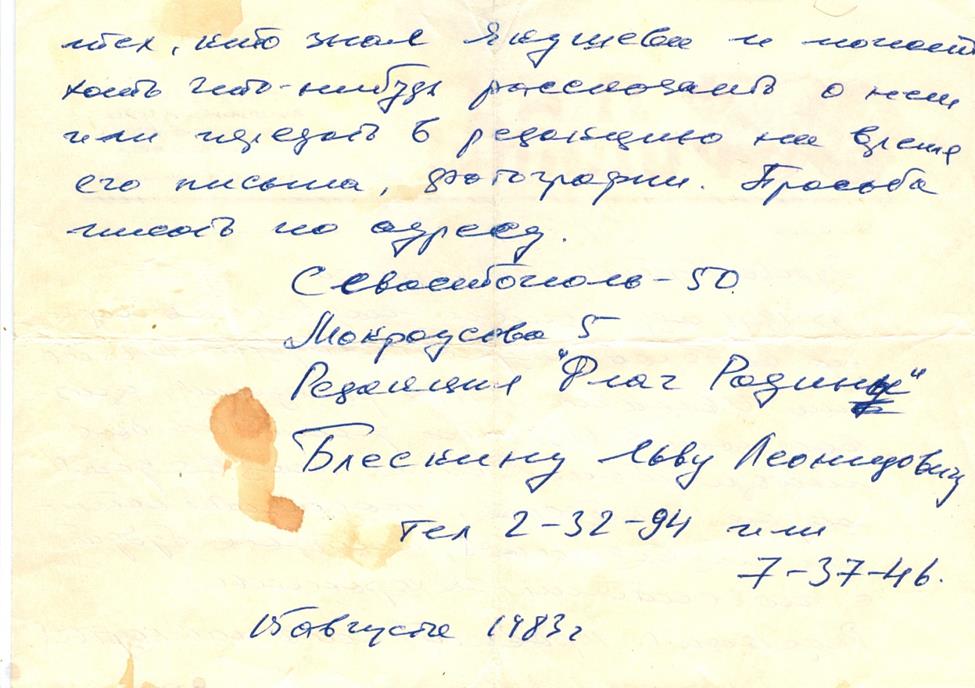 тех, кто знал Якушева и может
хоть что-нибудь рассказать о нем
или передать в редакцию на время
его письма, фотографии. Просьба
писать по адресу.
Севастополь-50.
Мокроусова 5
Редакция "Флаг Родины"
Блескину Льву Леонидовичу
тел 2-32-94 или
7-37-46.
15 августа 1983 г